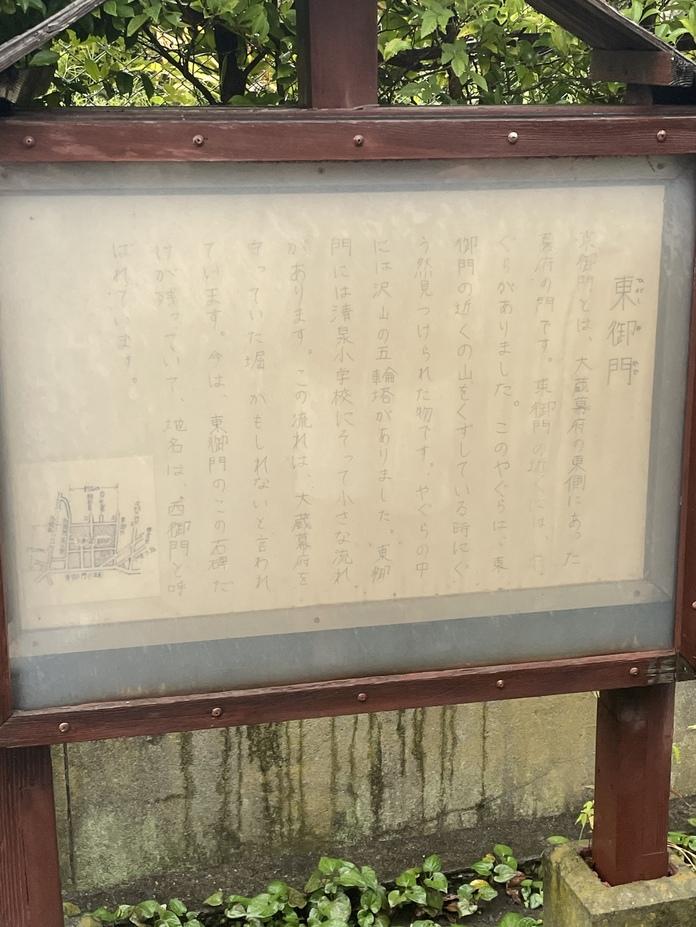 東御門
東御門とは、大蔵幕府の東側にあった
幕府の門です。東御門の近くには、
ぐらがありました。このやぐらは、東
御門の近くの山をくずしている時にぐ
う然見つけられた物です。やぐらの中
には沢山の五輪塔がありました。東御
門には清泉小学校にそって小さな流れ
があります。この流れは、大蔵幕府を
守っていた堀かもしれないと言われ
ています。今は、東御門のこの石碑だ
けが残っていて、地名は、西御門と呼
ばれています。